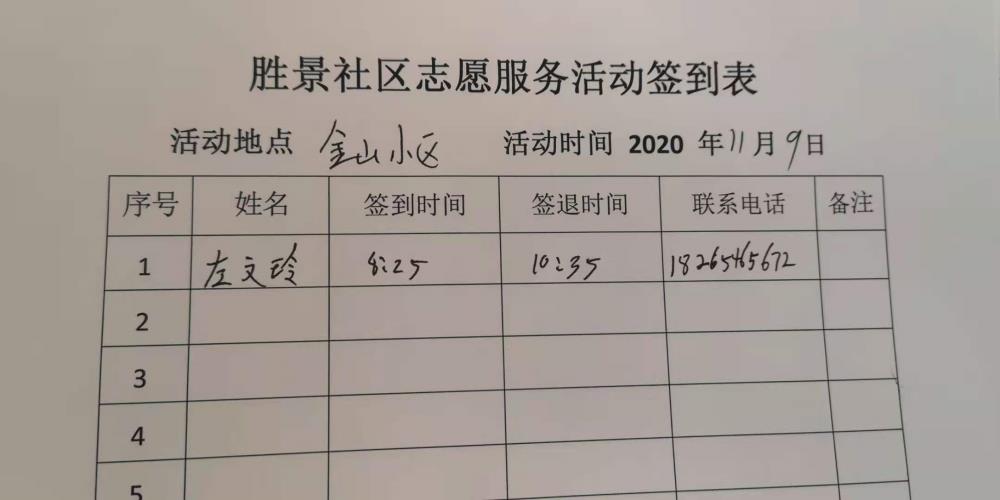 胜景社区志愿服务活动签到表
活动地点 金山小区 活动时间 2020 年11月9日
序号 姓名 签到时间 签退时间 联系电话 备注
1 左文玲 8:25 10:35 18265465672
2
3
4
5